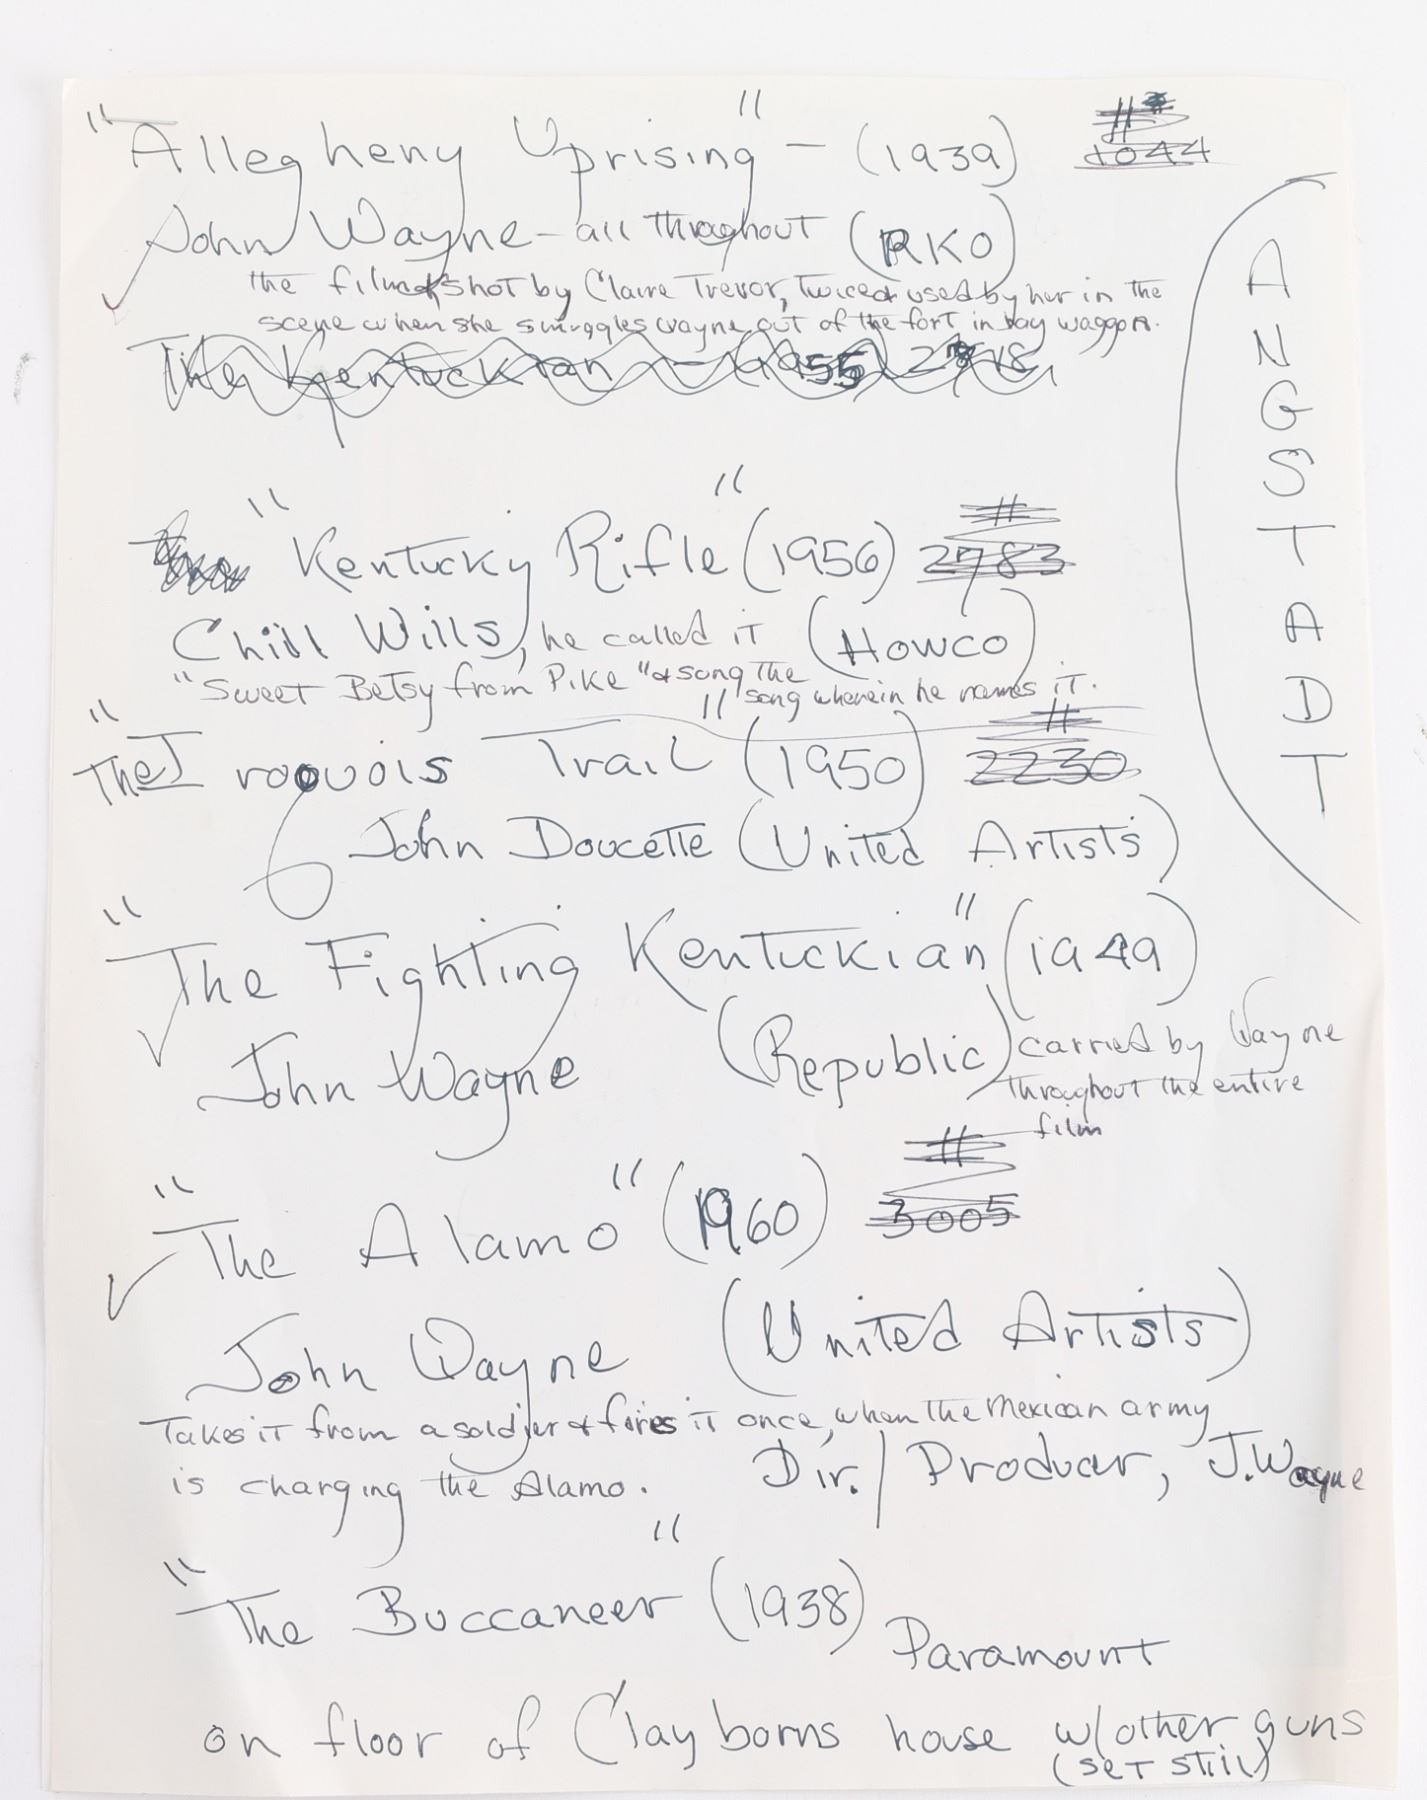 "Allegheny Uprising" - (1939) # 1044
John Wayne - all throughout (RKO)
the film & shot by Claire Trevor, twice & used by her in the
scene when she smuggles wayne out of the fort in hay waggon.
The Kentuckian - (1955)
"Kentucky Rifle" (1956) # 2783
Chill Wills, he called it (Howco)
"Sweet Betsy from Pike" & song the
song wherein he names it.
"The Iroquois Trail" (1950) # 2230
John Doucette (United Artists)
"The Fighting Kentuckian" (1949)
John Wayne (Republic) carried by Wayne
throughout the entire
film
"The Alamo" (1960) # 3005
John Wayne (United Artists)
Takes it from a soldier & fires it once, when the Mexican army
is charging the Alamo. Dir./Producer, J. Wayne
"The Buccaneer" (1938)
Paramount
on floor of Clayborns house w/other guns
(set still)
ANGSTADT